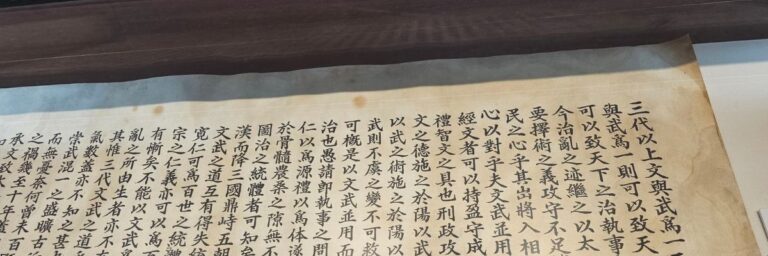 三代以上文與武爲一
與武爲一則可以致天
可以致天下之治執事
今治亂之迹繼之以太
要擇術之義攻守不足
民之心乎其出將入相
心以對乎夫文武並用
經文者可以持盈守成
禮智文之具也刑政攻
文之德施之於陽以武
以武之術施之於陽以
武則不虞之變不可救
可概是以文武並用而
治也愚請即執事之問
仁以爲源禮以爲体遂
於骨髓農桑之隙無不
國治之統體者可知矣
漢而降三國鼎峙五朝
文武之道互有得失
寬仁可爲百世之統
宗之仁義亦可以爲百
有慚矣不能以文武
亂之所由生者亦不
其惟三代文武之道
氣數盖亦不知之甚
崇武混之盛曠古
而無憂柰何曾未百
之禍幾至十年
承文